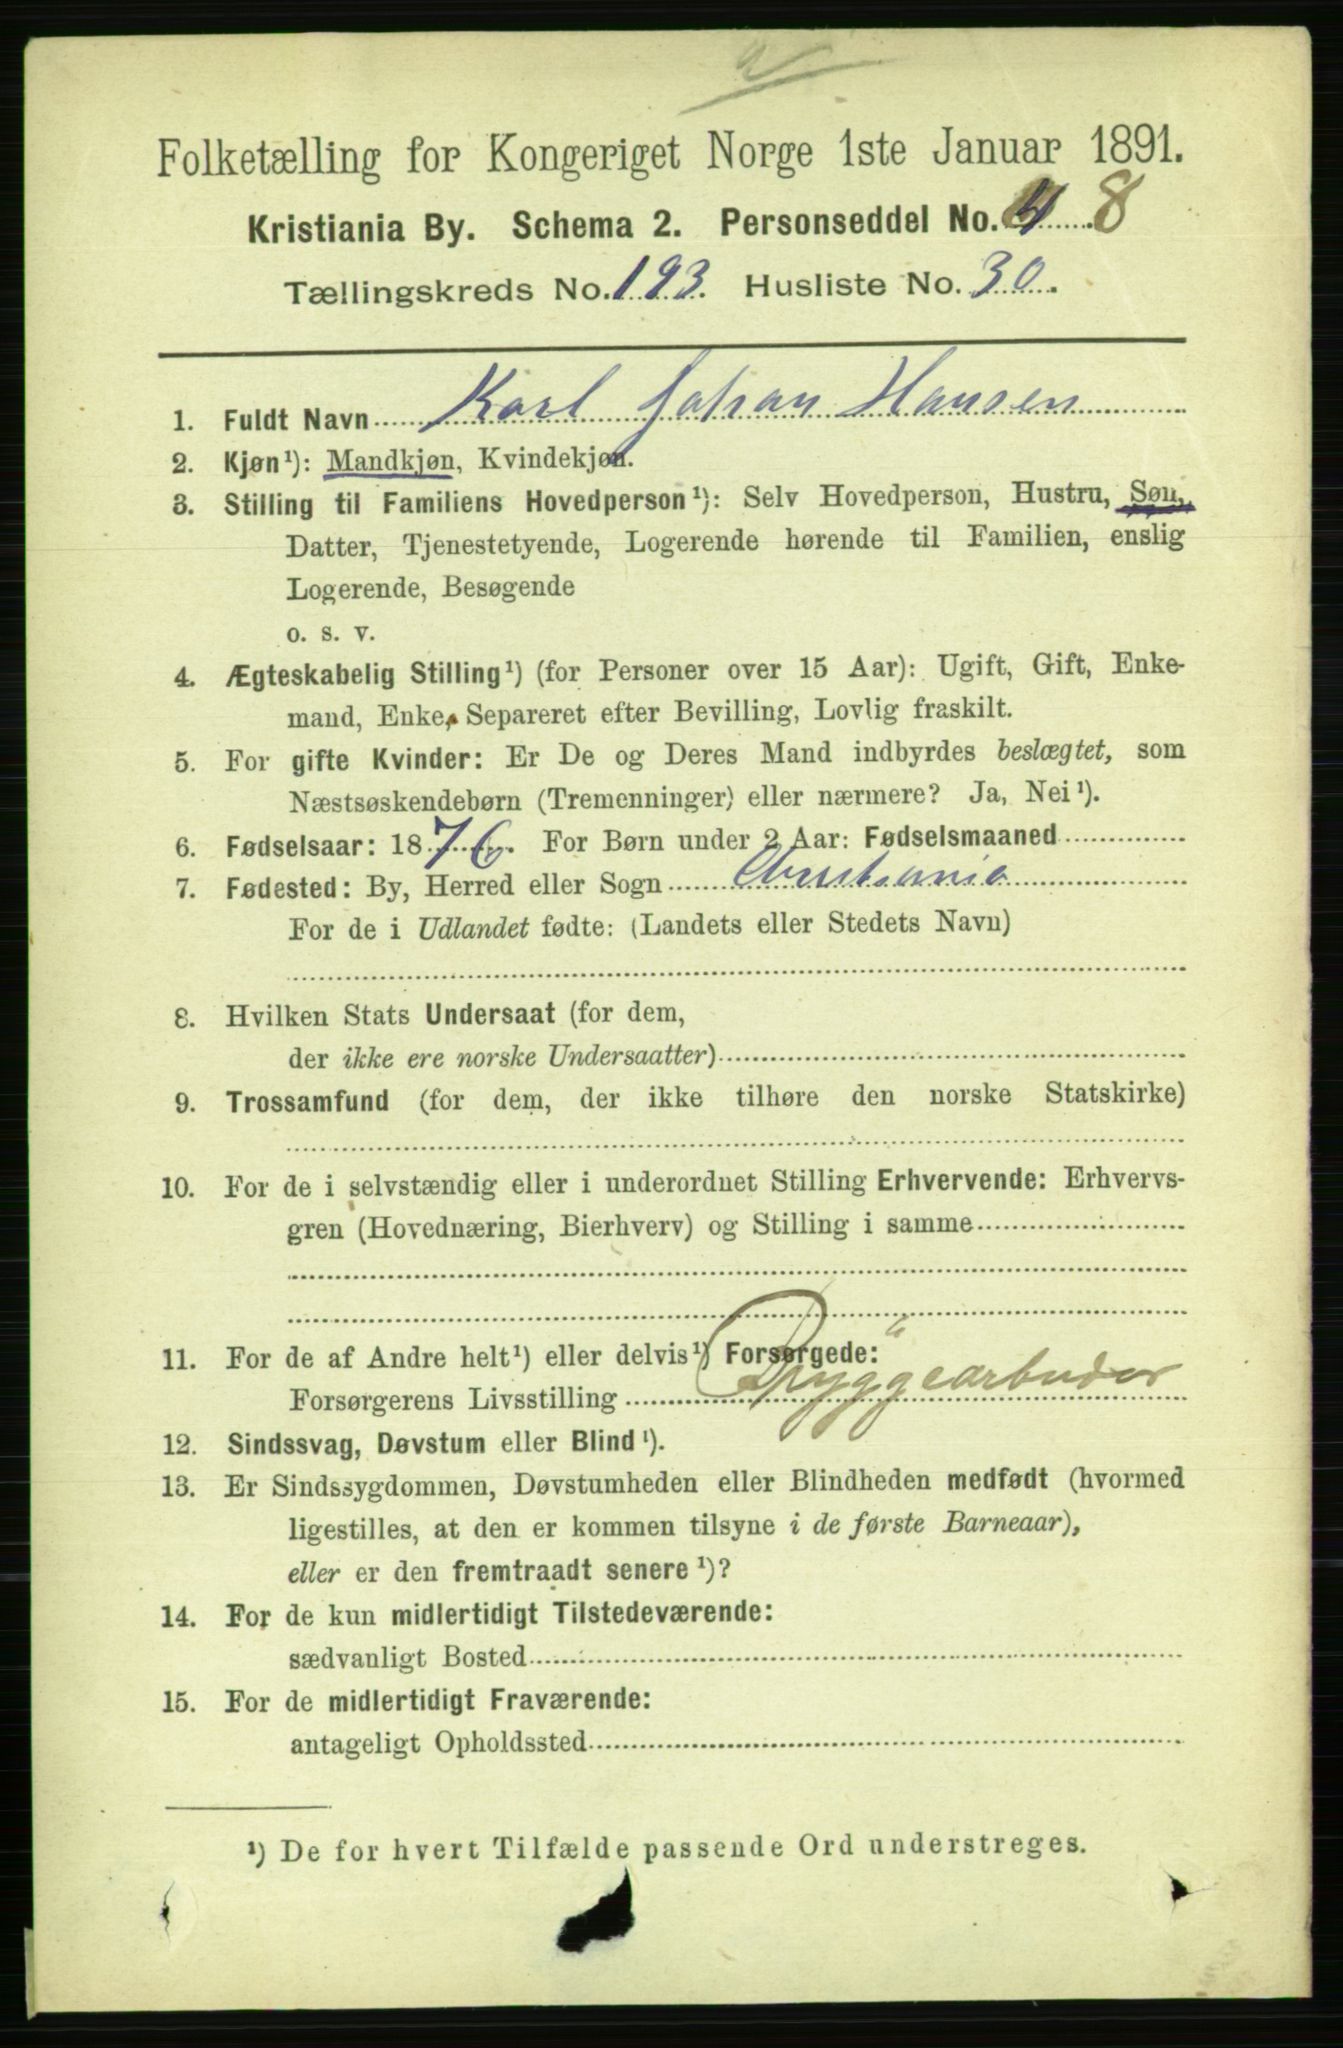 Folketælling for Kongeriget Norge 1ste Januar 1891.
Kristiania By. Schema 2. Personseddel No. 8
Tællingskreds No. 193. Husliste No. 30.
1. Fuldt Navn Karl Johan Hansen
2. Kjøn¹): Mandkjøn, Kvindekjøn.
3. Stilling til Familiens Hovedperson¹): Selv Hovedperson, Hustru, Søn,
Datter, Tjenestetyende, Logerende hørende til Familien, enslig
Logerende, Besøgende
o. s. v.
4. Ægteskabelig Stilling¹) (for Personer over 15 Aar): Ugift, Gift, Enke-
mand, Enke, Separeret efter Bevilling, Lovlig fraskilt.
5. For gifte Kvinder: Er De og Deres Mand indbyrdes beslægtet, som
Næstsøskendebørn (Tremenninger) eller nærmere? Ja, Nei¹).
6. Fødselsaar: 1876. For Børn under 2 Aar: Fødselsmaaned
7. Fødested: By, Herred eller Sogn Christiania
For de i Udlandet fødte: (Landets eller Stedets Navn)
8. Hvilken Stats Undersaat (for dem,
der ikke ere norske Undersaatter)
9. Trossamfund (for dem, der ikke tilhøre den norske Statskirke)
10. For de i selvstændig eller i underordnet Stilling Erhvervende: Erhvervs-
gren (Hovednæring, Bierhverv) og Stilling i samme
11. For de af Andre helt¹) eller delvis¹) Forsørgede:
Forsørgerens Livsstilling Bryggearbeider
12. Sindssvag, Døvstum eller Blind¹).
13. Er Sindssygdommen, Døvstumheden eller Blindheden medfødt (hvormed
ligestilles, at den er kommen tilsyne i de første Barneaar),
eller er den fremtraadt senere¹)?
14. For de kun midlertidigt Tilstedeværende:
sædvanligt Bosted
15. For de midlertidigt Fraværende:
antageligt Opholdssted
¹) De for hvert Tilfælde passende Ord understreges.